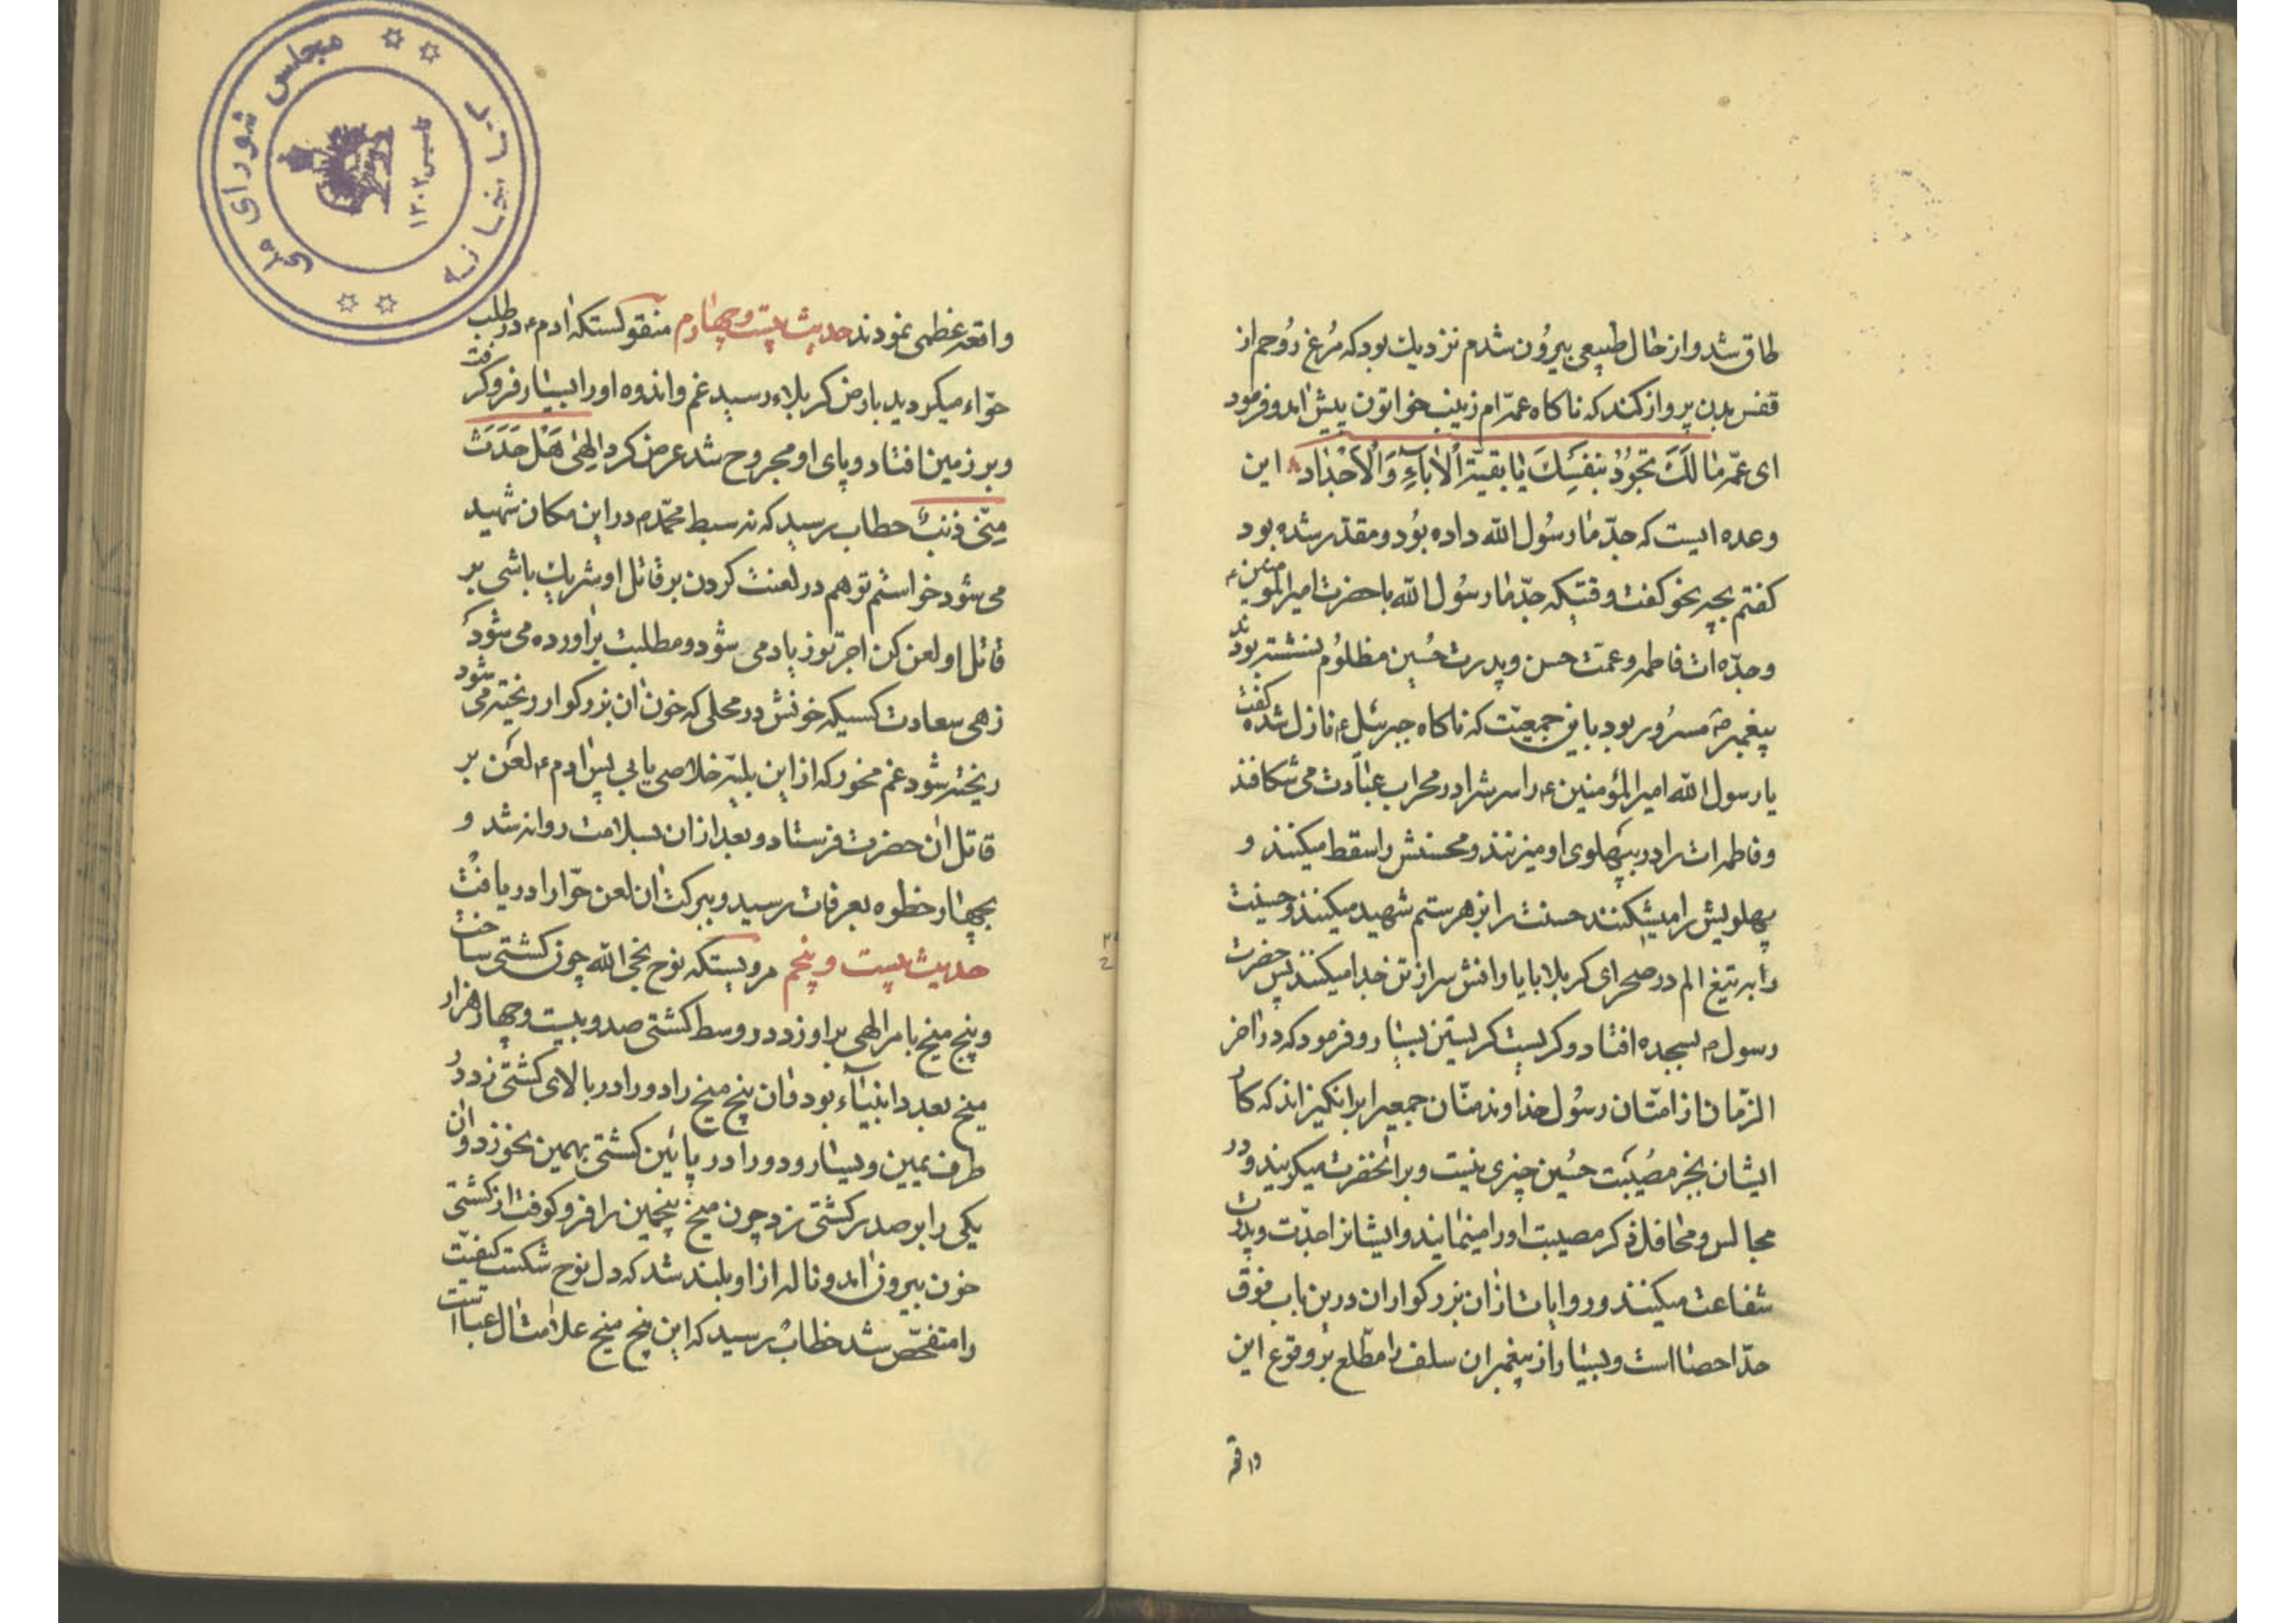 طاق شد و از حال طبیعی بیرُون شدم نزدیك بود كه مُرغ رُوحم از
قفس بدن پرواز كند كه ناكاه عمّه‌ام زینب خواتون پیش امد و فرمود
ای عمّه مٰا لَكَ تَجُودُ بِنَفْسِكَ یٰا بَقیَّةَ اْلاٰبآءِ وَالْاَجْدٰاد این
وعده ایست كه جدّ مٰا رسُول اللّه داده بوُد و مقدّر شده بود
كفتم بچه نحو كفت وقتیكه جدّ مٰا رسُول اللّه با حضرت امیر المومنین ع
و جدّه ات فاطمه و عمّت حسن و پدرت حُسین مظلوُم نشسته بودند
پیغمبر ص مسرُور بود باین جمعیّت كه ناكاه جبرئیل ع نازل شده كفت
یا رسول اللّه امیر المؤمنین ع را سرش را در محراب عبٰادت می شكافند
و فاطمه ات را در بپهلوی او میزنند و محسنش را سقط میكنند و
پهلویش را میشكنند حسنت را بزهر ستم شهید میكنند و حسینت
را به تیغ الم در صحرای كربلا با یارانش سر از تن جدا میكنند پس حضرت
رسول ص بسجده افتاد و كریست كریستن بسیٰار و فرمود كه در اٰخر
الزّمان از امتّان رسُول خداوند منّان جمعیرا برانكیزاند كه كار
ایشان بجز مصُیبَت حسُین چیزی نیست و بر انحضرت میكریند و در
مجالس و محٰافل ذكر مصیبت او را مینمٰایند و ایشانرا جدّت و پدرت
شفاعت میكنند و روایات از ان بزركواران درین باب فوق
حدّ احصا است و بسیٰار از پیغمبران سلف را مطّلع بر وقوع این
واقعه
واقعه عظمی نمودند حدیث بیست و چهٰارم منقولستكه اٰدم ع در طلب
حوّاء میكردید بارض كربلاء رسید غم و اندوه او را بسیٰار فرو كرفت
و بر زمین افتاد و پای او مجروح شد عرض كرد الهٰی هَلْ حَدَثَ
مِنّی ذَنبٌ خطاب رسید كه نه سبط محمّد ص در این مكان شهید
می شود خواستم تو هم در لعنت كردن بر قاتل او شریك باشی بر
قاتل او لعن كن اجر تو زیاد می شود و مطلبت براورده می شود
زهی سعادت كسیكه خونش در محلی كه خون اٰن بزركوار ریخته می شود
ریخته شود غم مخور كه از این بلیّه خلاصی یابی پس اٰدم ع لعن بر
قاتل اٰن حضرت فرستاد و بعد از ان بسلامت روانه شد و
بچهٰار خطوه بعرفات رسید و ببركت اٰن لعن حوّا را دریافت
حدیث بیست و پنجم مرویستكه نوح نجی اللّه چون كشتی ساخت
و پنج میخ بامر الهی بر او زد در وسط كشتی صد و بیست و چهار هزار
میخ بعدد انبیٰآء بود و اٰن پنج میخ را دو را در بالای كشتی زد در
طرف یمین و یسٰار و دو را در پائین كشتی بهمین نحو زد و اٰن
یكی را بر صدر كشتی زد چون میخ پنجمین را فرو كوفت از كشتی
خون بیرون اٰمد و ناله از او بلند شد كه دل نوح شكست كیفیّت
را متفحّص شد خطاب رسید كه این پنج میخ علامت اٰل عباست
كتابخانه مجلس شورای ملی
تاسیس ۱۳۰۲